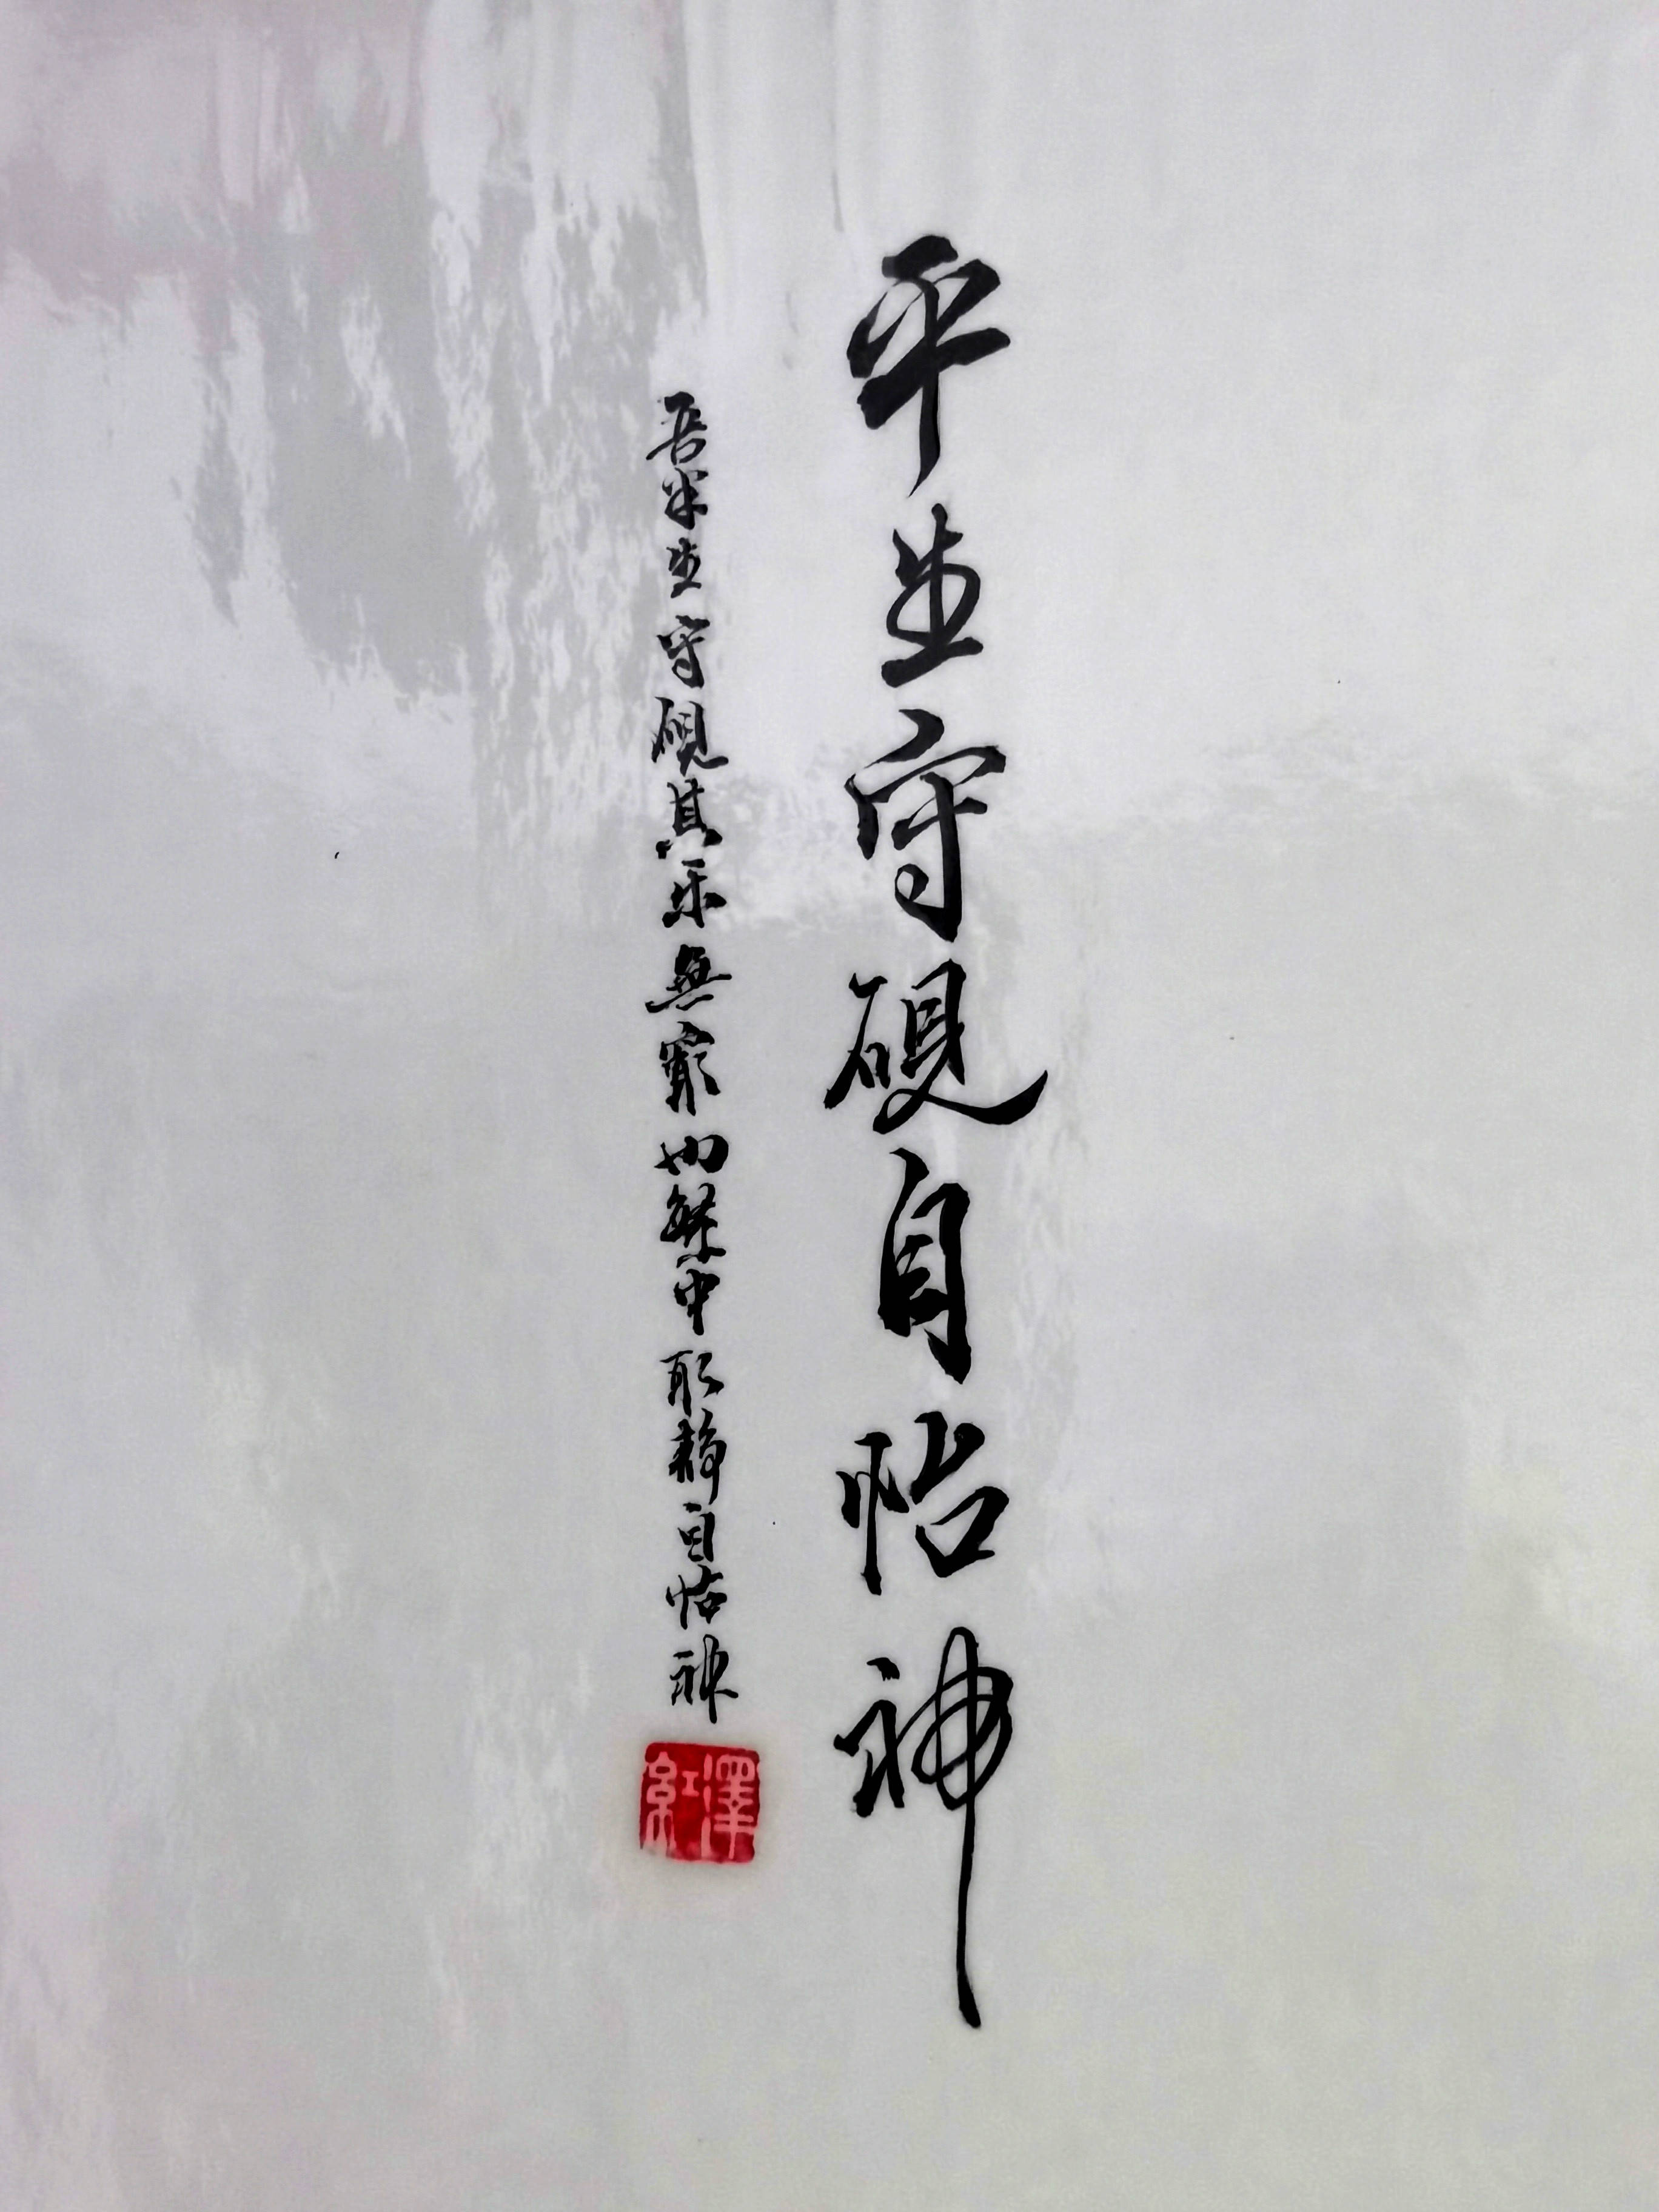 平生守硯自怡神
吾半生守硯其乐無窮也繁中取静自怡神
澤紅